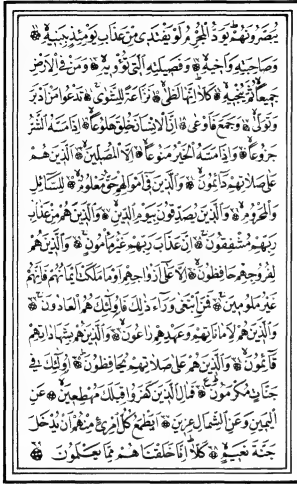 يُبَصَّرُونَهُمْ يَوَدُّ الْمُجْرِمُ لَوْ يَفْتَدِي مِنْ عَذَابِ يَوْمِئِذٍ بِبَنِيهِ
وَصَاحِبَتِهِ وَأَخِيهِ وَفَصِيلَتِهِ الَّتِي تُؤْوِيهِ وَمَنْ فِي الْأَرْضِ
جَمِيعًا ثُمَّ يُنْجِيهِ كَلَّا إِنَّهَا لَظَى نَزَّاعَةً لِلشَّوَى تَدْعُوا مَنْ أَدْبَرَ
وَتَوَلَّى وَجَمَعَ فَأَوْعَى إِنَّ الْإِنْسَانَ خُلِقَ هَلُوعًا إِذَا مَسَّهُ الشَّرُّ
جَزُوعًا وَإِذَا مَسَّهُ الْخَيْرُ مَنُوعًا إِلَّا الْمُصَلِّينَ الَّذِينَ هُمْ
عَلَى صَلَاتِهِمْ دَائِمُونَ وَالَّذِينَ فِي أَمْوَالِهِمْ حَقٌّ مَعْلُومٌ لِلسَّائِلِ
وَالْمَحْرُومِ وَالَّذِينَ يُصَدِّقُونَ بِيَوْمِ الدِّينِ وَالَّذِينَ هُمْ مِنْ عَذَابِ
رَبِّهِمْ مُشْفِقُونَ إِنَّ عَذَابَ رَبِّهِمْ غَيْرُ مَأْمُونٍ وَالَّذِينَ هُمْ
لِفُرُوجِهِمْ حَافِظُونَ إِلَّا عَلَى أَزْوَاجِهِمْ أَوْ مَا مَلَكَتْ أَيْمَانُهُمْ فَإِنَّهُمْ
غَيْرُ مَلُومِينَ فَمَنِ ابْتَغَى وَرَاءَ ذَلِكَ فَأُولَئِكَ هُمُ الْعَادُونَ
وَالَّذِينَ هُمْ لِأَمَانَاتِهِمْ وَعَهْدِهِمْ رَاعُونَ وَالَّذِينَ هُمْ بِشَهَادَاتِهِمْ
قَائِمُونَ وَالَّذِينَ هُمْ عَلَى صَلَاتِهِمْ يُحَافِظُونَ أُولَئِكَ فِي
جَنَّاتٍ مُكْرَمُونَ فَمَالِ الَّذِينَ كَفَرُوا قِبَلَكَ مُهْطِعِينَ عَنِ
الْيَمِينِ وَعَنِ الشِّمَالِ عِزِينَ أَيَطْمَعُ كُلُّ امْرِئٍ مِنْهُمْ أَنْ يُدْخَلَ
جَنَّةَ نَعِيمٍ كَلَّا إِنَّا خَلَقْنَاهُمْ مِمَّا يَعْلَمُونَ